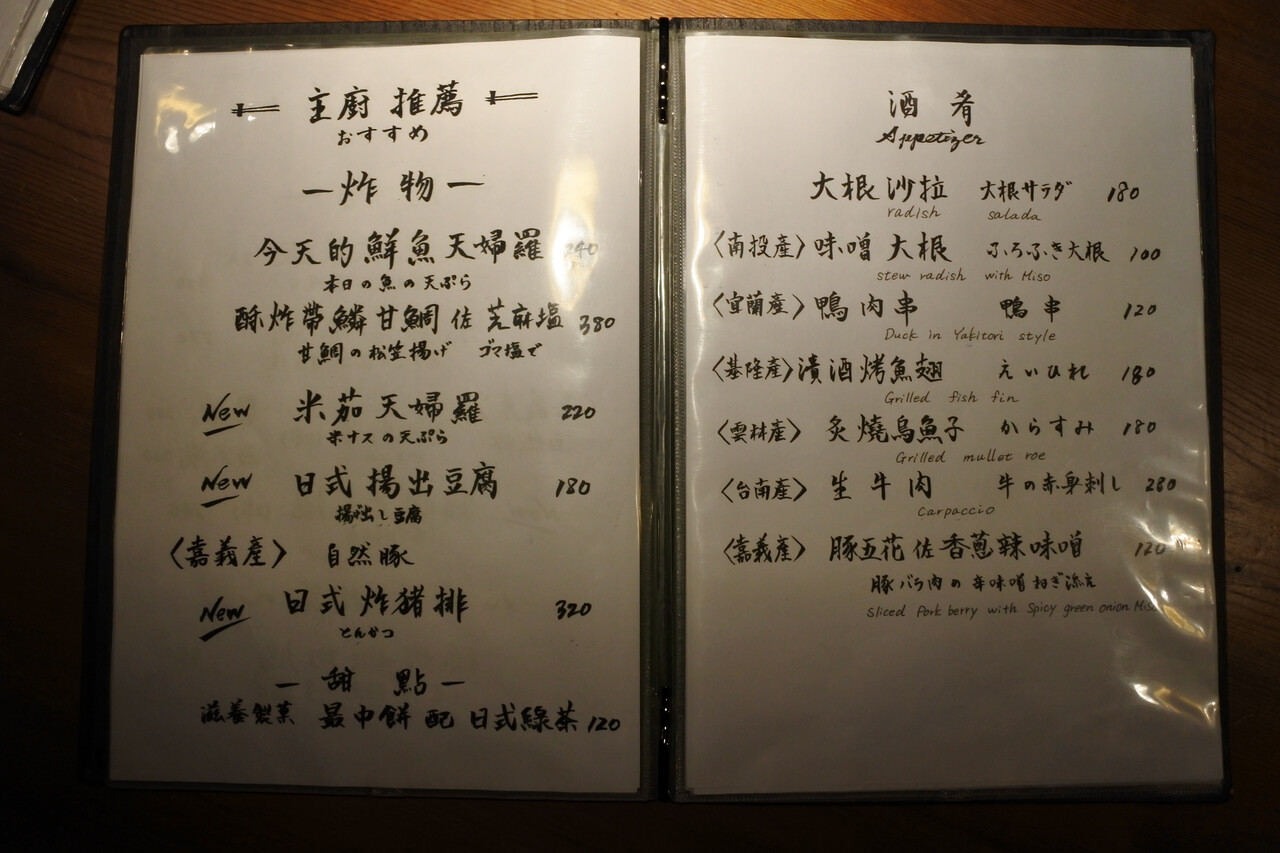 主廚 推薦
おすすめ
一炸物一
今天的鮮魚天婦羅 240
本日の魚の天ぷら
酥炸帶鱗甘鯛 佐 芝麻塩 380
甘鯛の松笠揚げ ゴマ塩で
New 米茄天婦羅 220
米ナスの天ぷら
New 日式揚出豆腐 180
揚出し豆腐
〈嘉義產〉 自然豚
New 日式炸豬排 320
とんかつ
一 甜 點 一
滋養製菓 最中餅 配 日式綠茶 120
酒肴
Appetizer
大根沙拉 大根サラダ 180
radish salada
〈南投產〉味噌大根 ふろふき大根 100
stew radish with Miso
〈宜蘭產〉鴨肉串 鴨串 120
Duck in Yakitori style
〈基隆產〉漬酒烤魚翅 えいひれ 180
Grilled fish fin
〈雲林產〉炙燒烏魚子 からすみ 180
Grilled mullet roe
〈台南產〉生牛肉 牛の赤身刺し 280
Carpaccio
〈嘉義產〉豚五花佐香蔥辣味噌 120
豚バラ肉の辛味噌ねぎ添え
Sliced Pork berry with Spicy green onion Miso